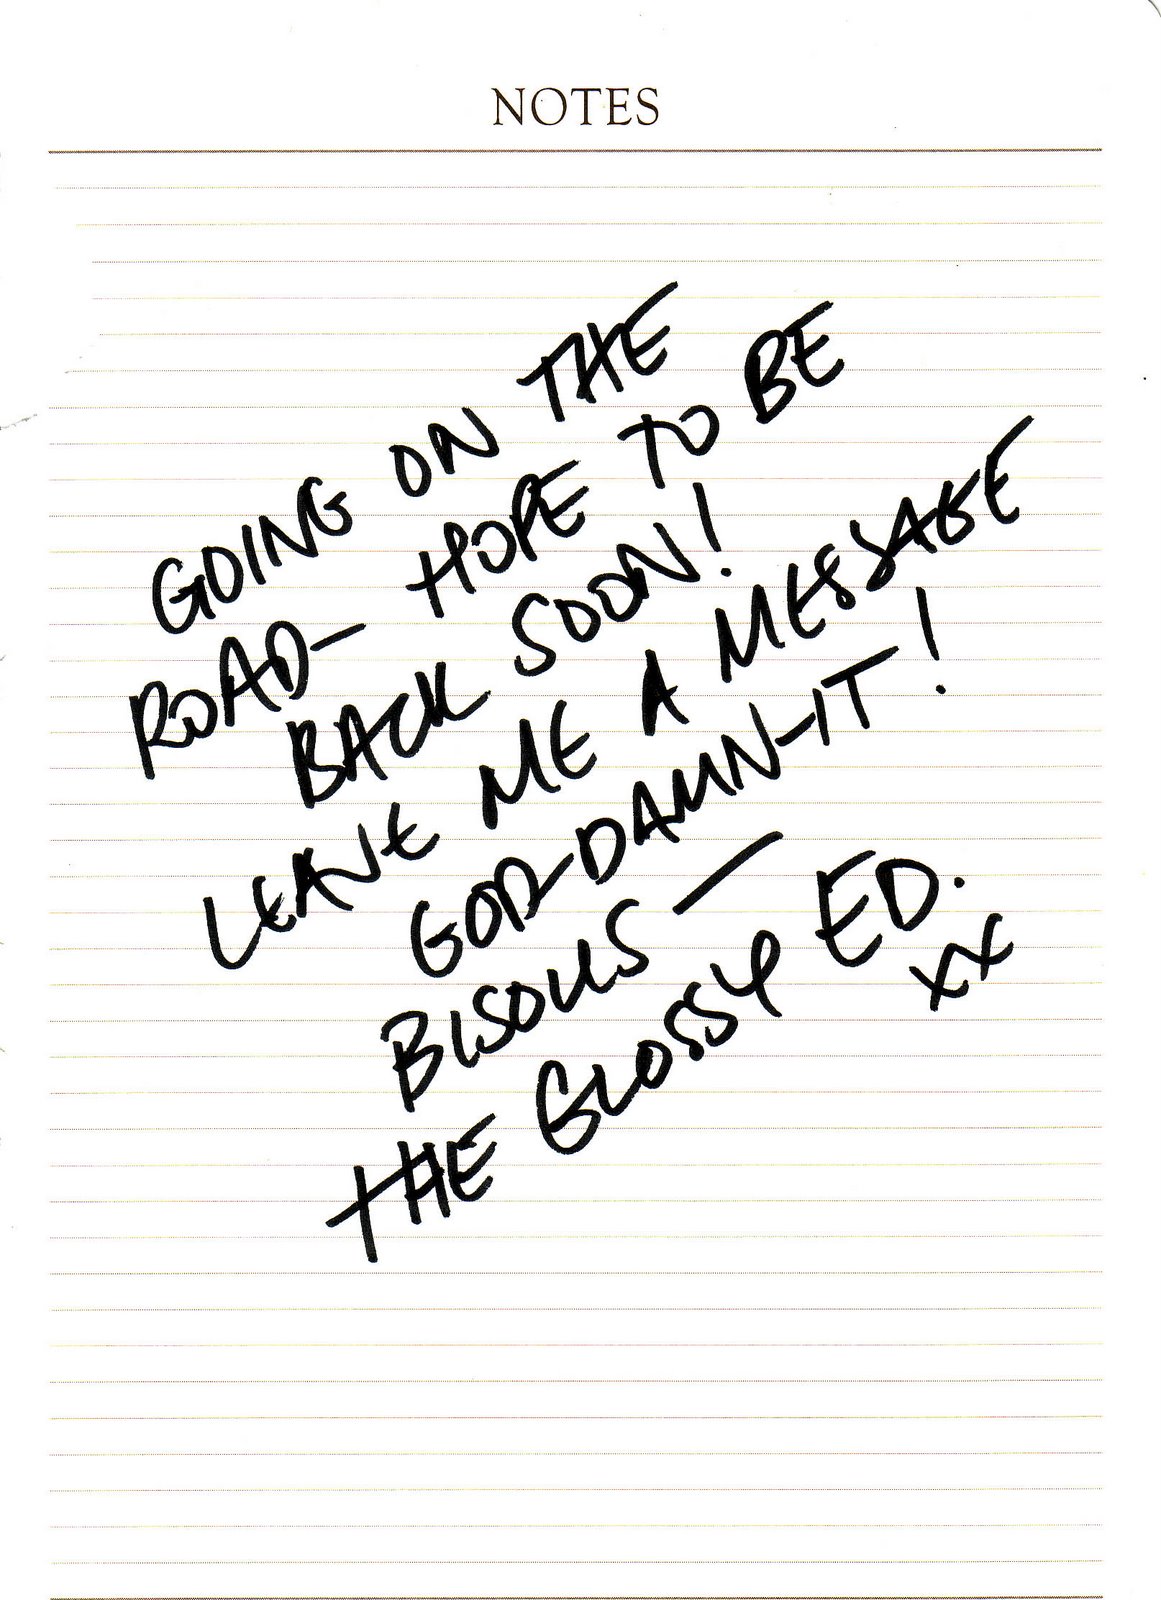 NOTES
GOING ON THE
ROAD- HOPE TO BE
BACK SOON!
LEAVE ME A MESSAGE
GOD-DAMN-IT!
BISOUS —
THE GLOSSY ED.
xx